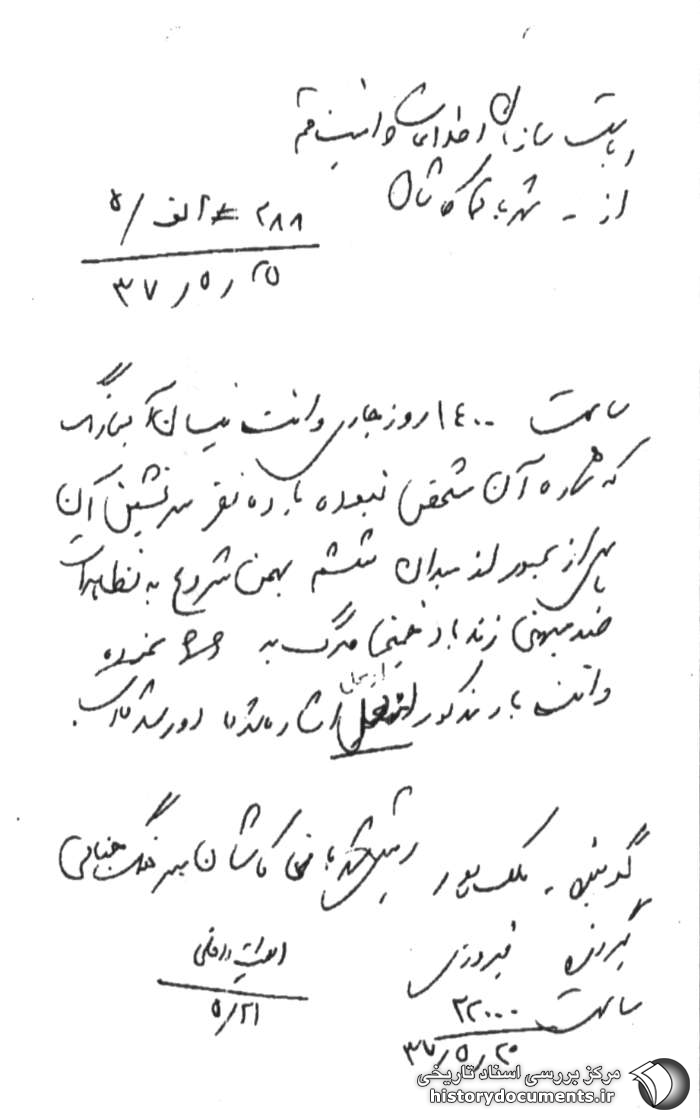 ریاست سازمان اطلاعات و امنیت قم
از - شهربانی کاشان
۲۸۸ - الف / ۵
۲۵ ر ۵ ر ۳۷
ساعت ۱۴۰۰ روز جاری وانت نیسان آبی رنگ
که شماره آن مشخص نبوده با ده نفر سرنشین آن
پس از عبور از میدان ششم بهمن شروع به تظاهرات
ضد میهنی زنده باد خمینی مرگ به نموده
وانت بار مذکور از محل دور شده است.
گوینده - ملک پور رئیس شهربانی کاشان سرهنگ
گیرنده فیروزی
امنیت داخلی
ساعت ۲۲۰۰۰
۵/۲۱
۲۰ ر ۵ ر ۳۷
مرکز بررسی اسناد تاریخی
historydocuments.ir